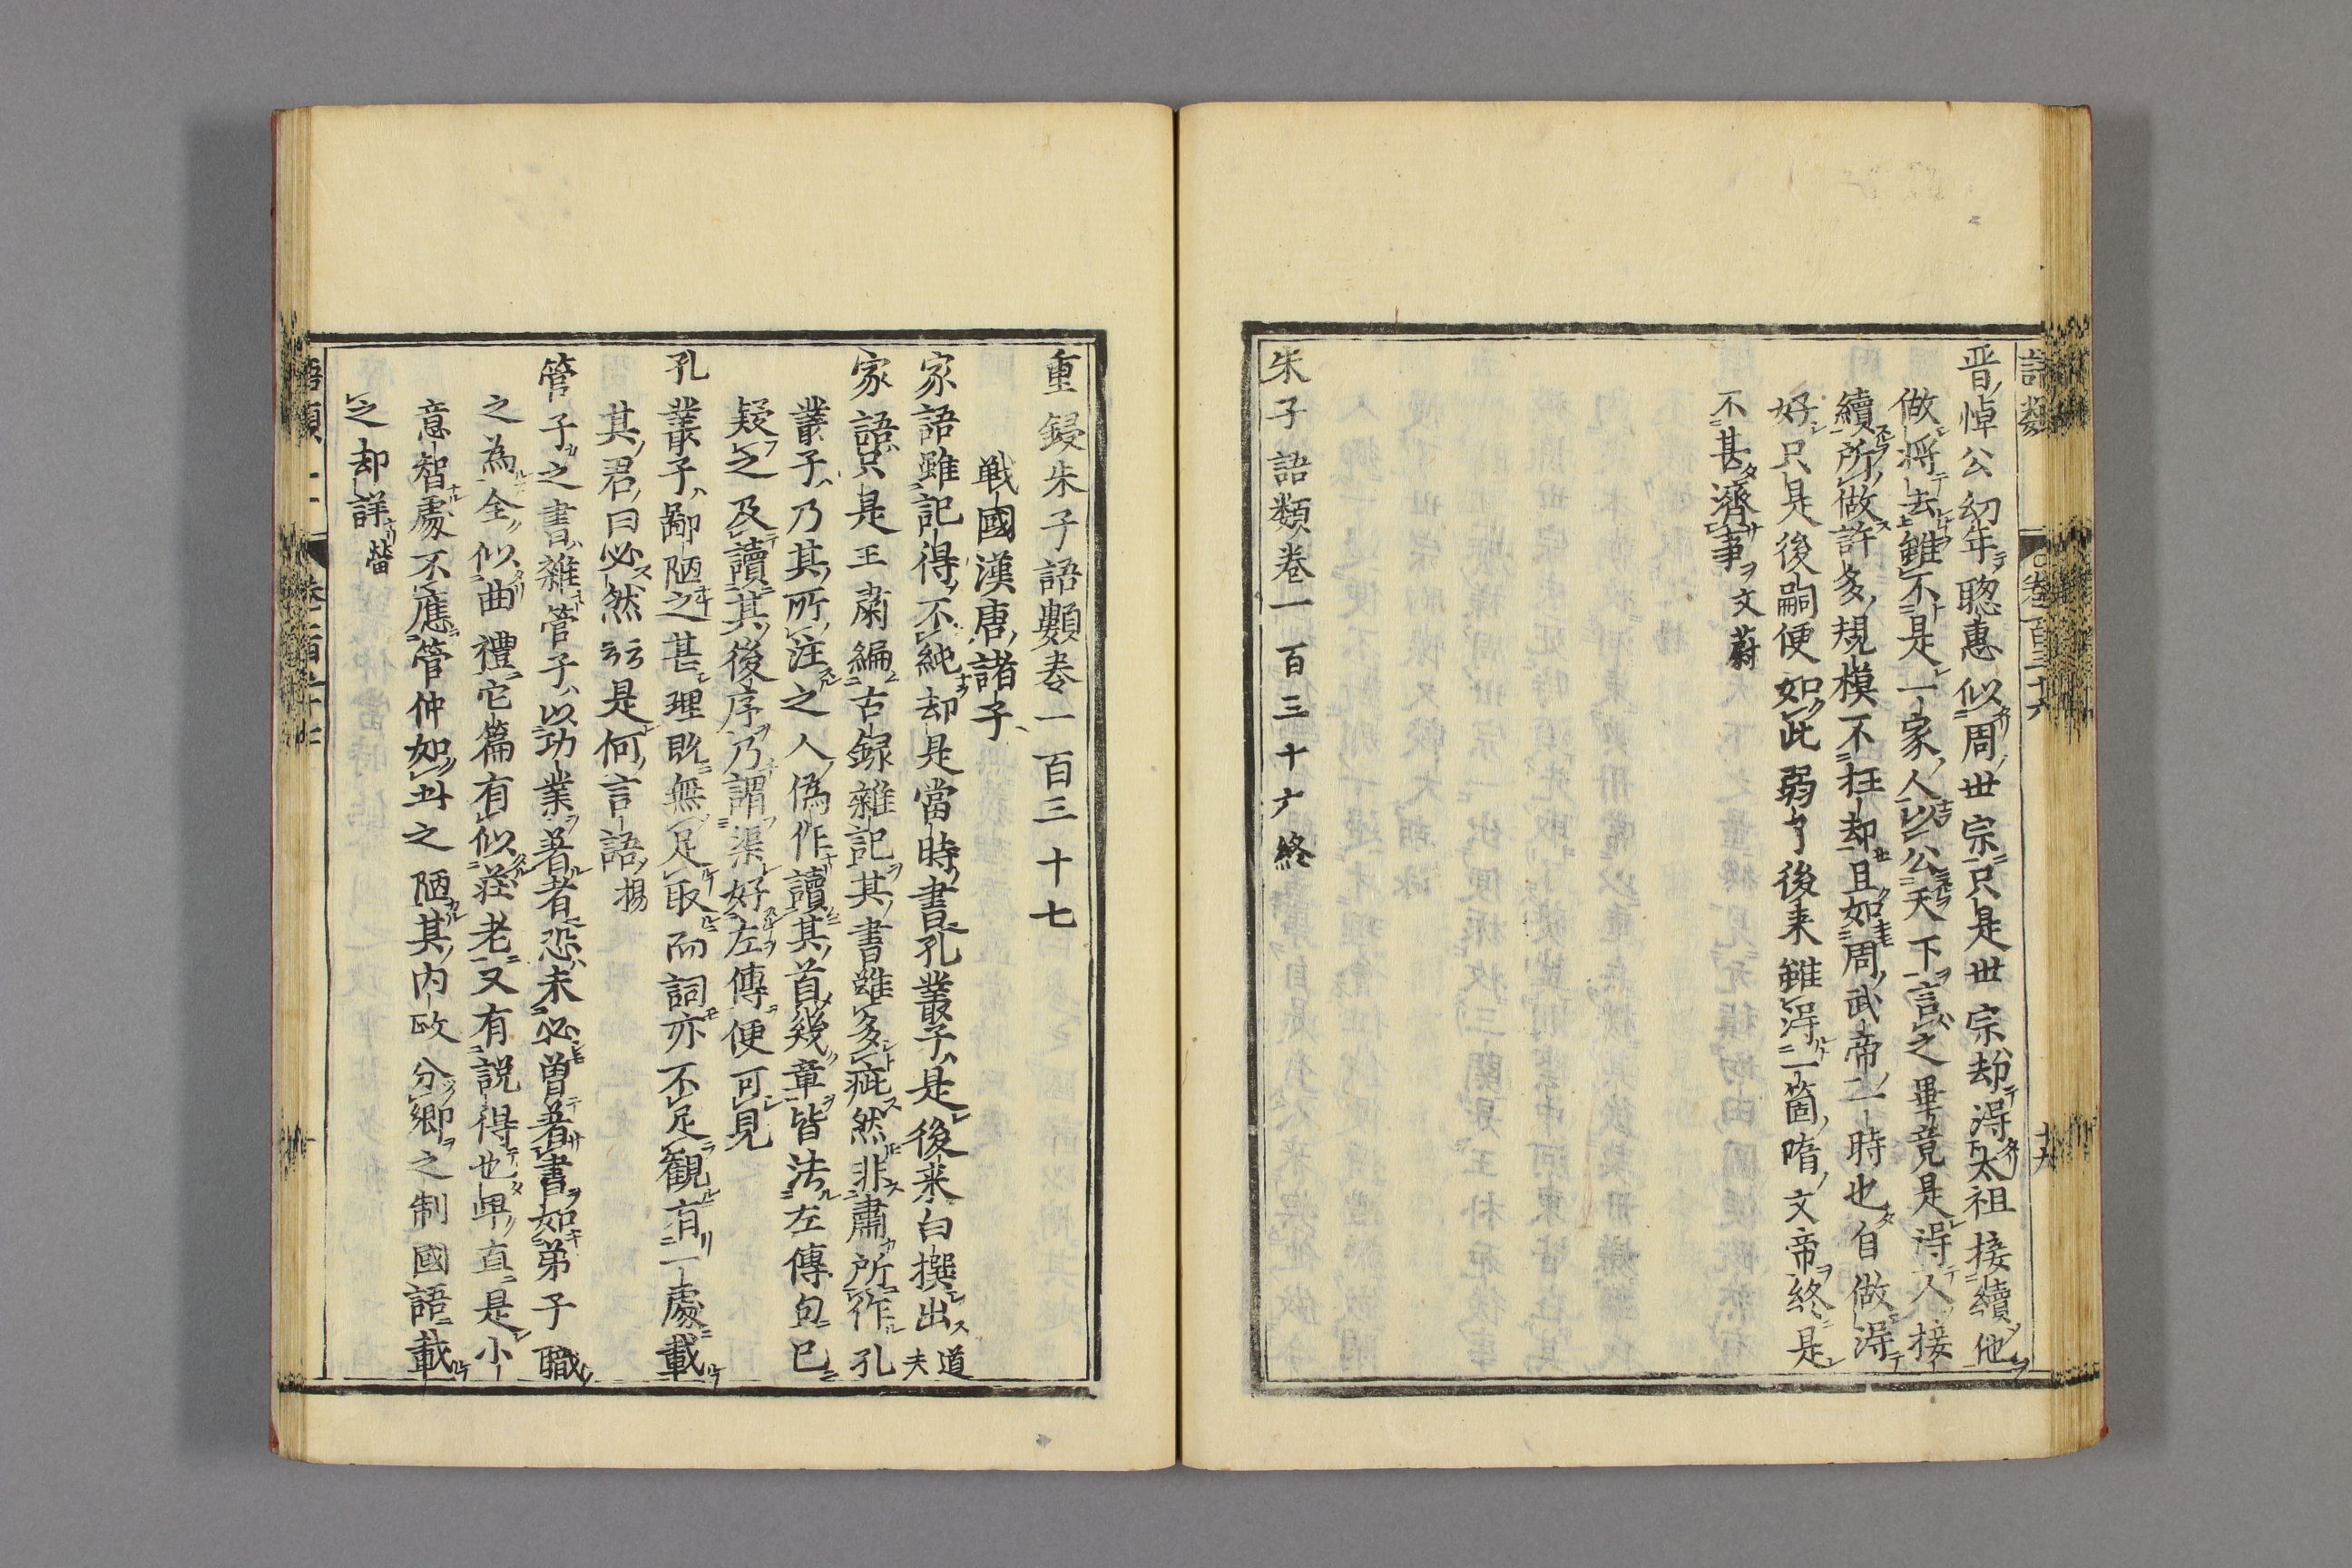 晋悼公幼年聦惠似周世宗只是世宗却淂太祖接續他
做將去雖不是一家人以公天下言之畢竟是淂人接
續所做許多規模不枉却且如周武帝一時也自做淂
好只是後嗣便如此弱了後来雖淂一箇隋文帝終是
不甚濟事文蔚
朱子語類卷一百三十六終
重鋟朱子語類卷一百三十七
戰國漢唐諸子
家語雖記得不純却是當時書孔叢子是後来白撰出道夫
家語只是王肅編古録雜記其書雖多疵然非肅所作孔
叢子乃其所注之人偽作讀其首幾章皆法左傳句已
疑之及讀其後序乃謂渠好左傳便可見
孔叢子鄙陋之甚理既無足取而詞亦不足観有一處載
其君曰必然云云是何言語揚
管子之書雜管子以功業著者恐未必曽著書如弟子職
之為全似曲禮它篇有似莊老又有説得也卑直是小
意智處不應管仲如此之陋其内政分鄉之制國語載
之却詳䕫